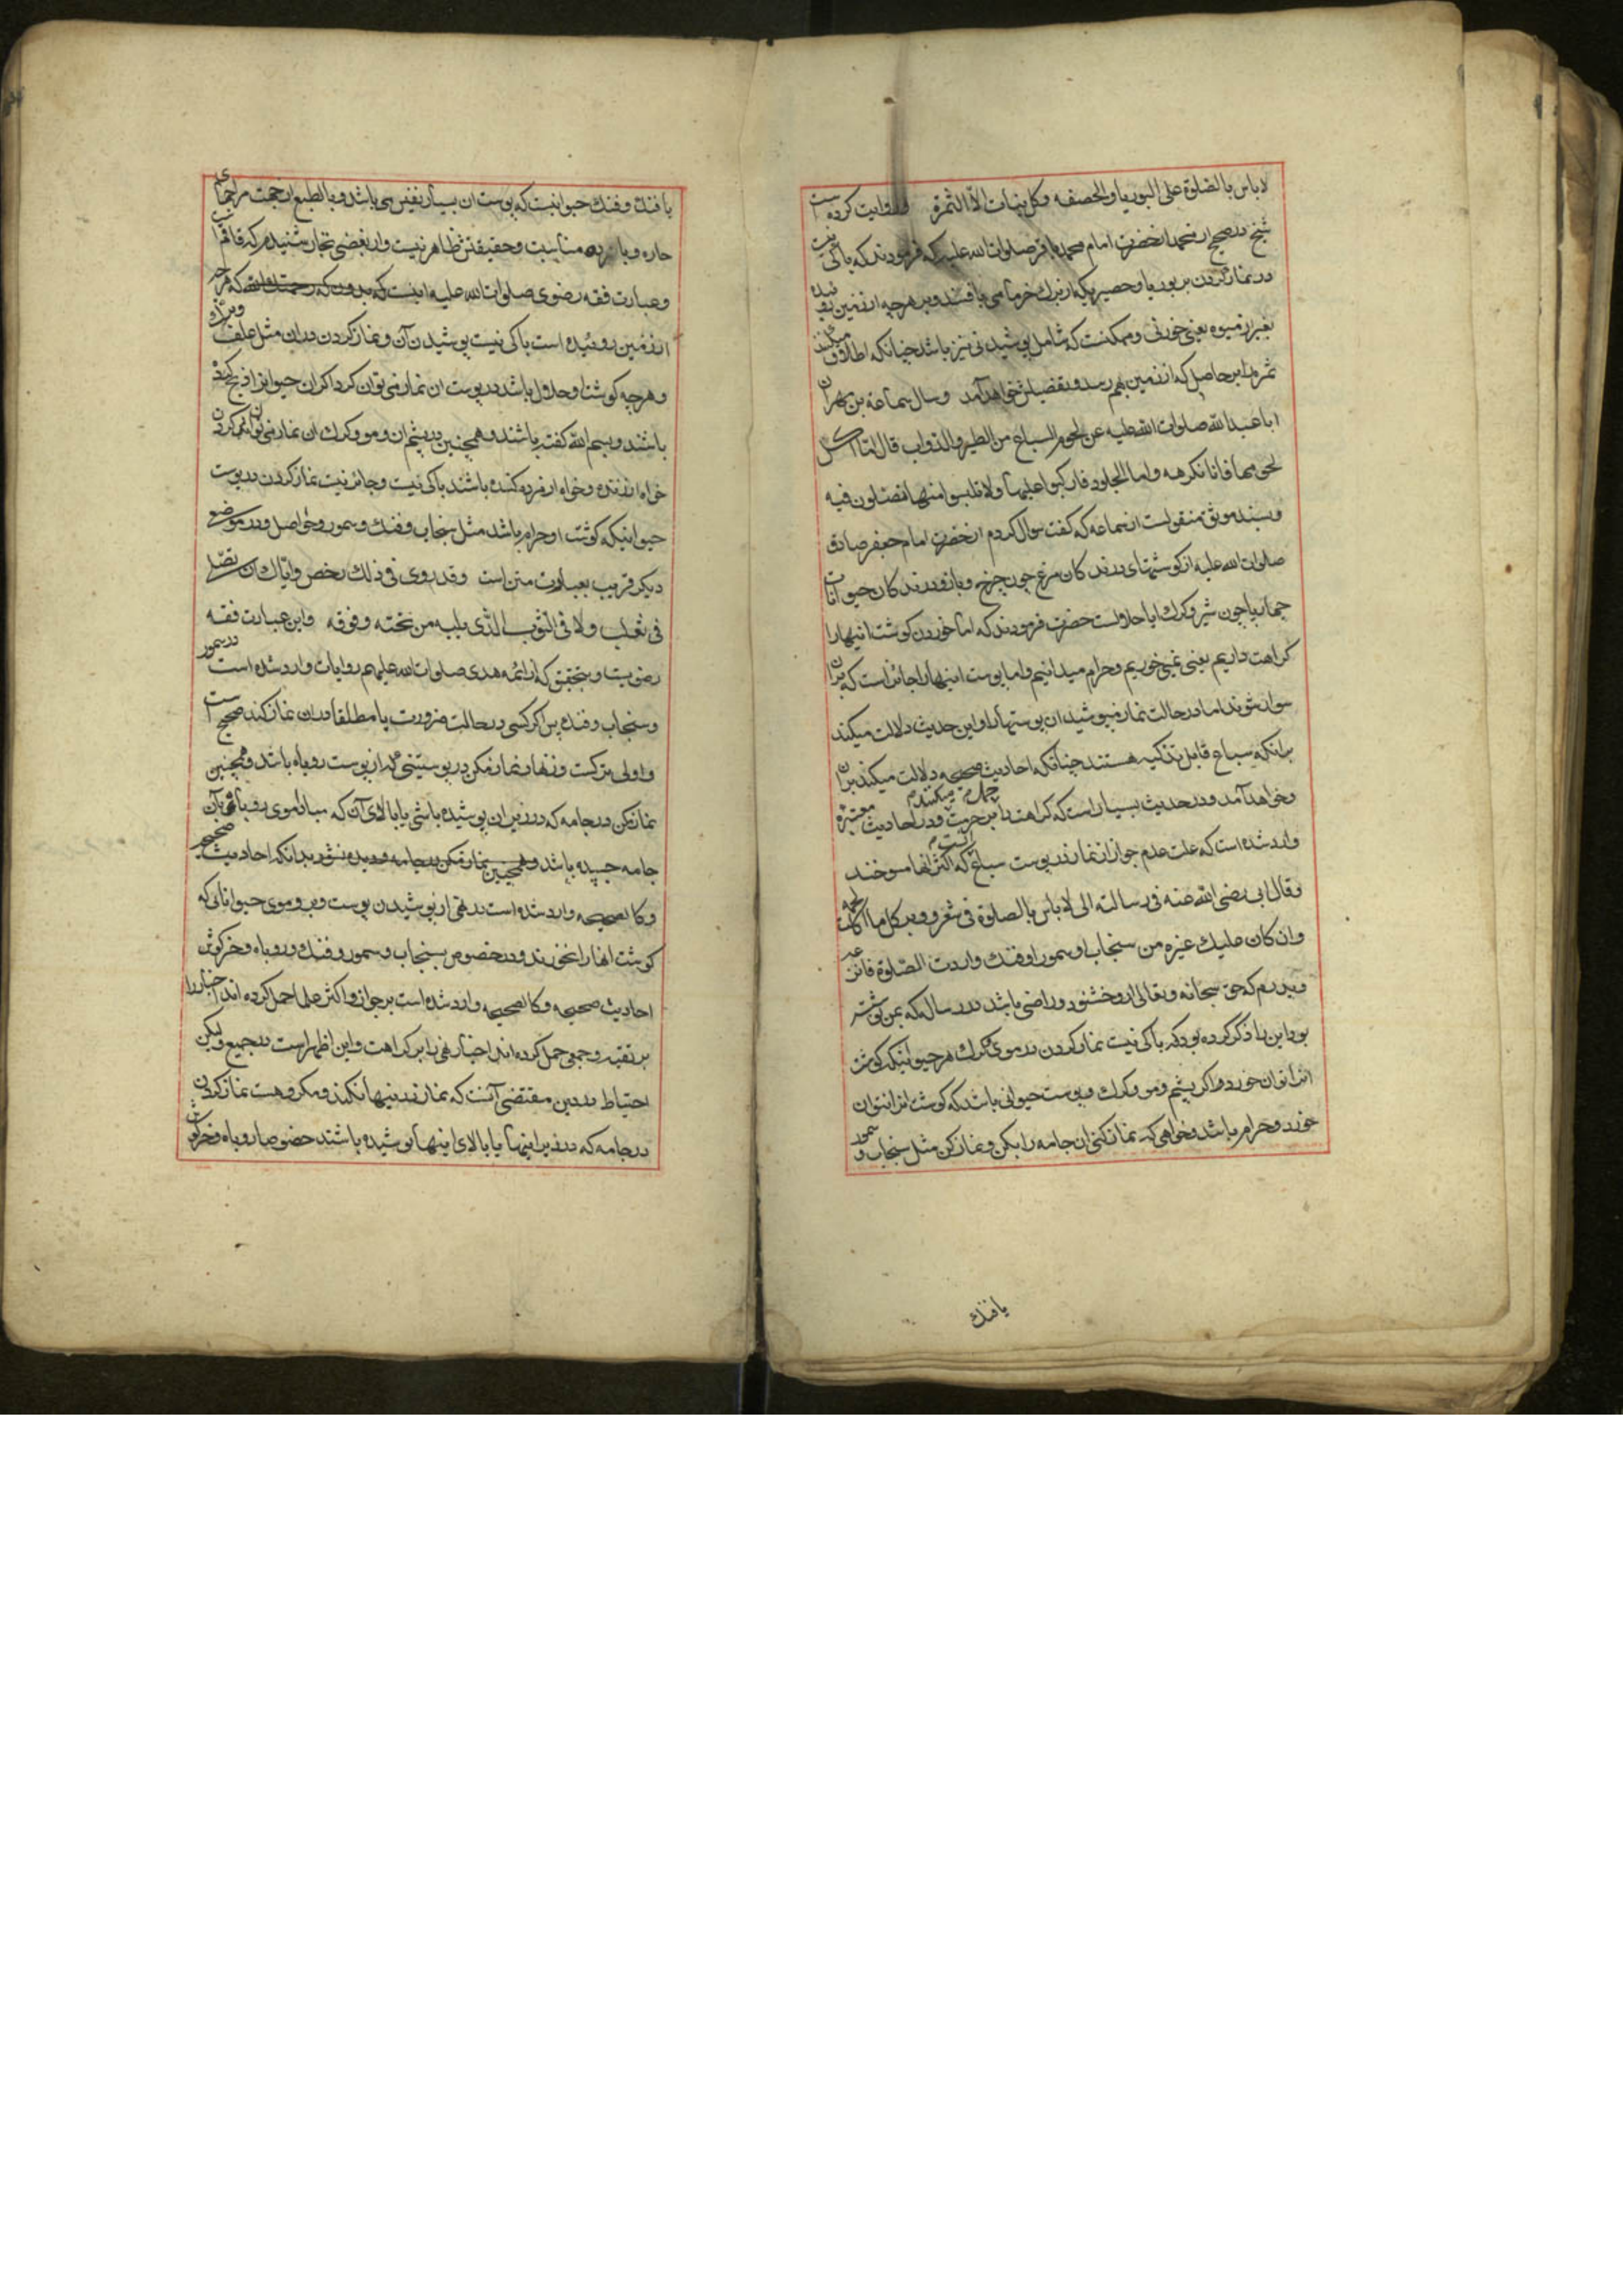 لا باس بالصلوة علی البوریا و الخصفه و کل نبات الا الثمرة و روایت کرده است
شیخ در صحیح از محمد از حضرت امام محمد باقر صلوات الله علیه که فرمودند که باکی نیست
در نماز کردن بر بوریا و حصیریکه از برك خرما می بافند و بر هر چه از زمین روئیده
بغیر از میوه یعنی خوردنی و ممکنست که شامل پوشیدنی نیز باشد چنانکه اطلاق میکنند
ثمره را بر حاصل که از زمین بهم رسد و تفصیلش خواهد آمد و سال سماعة بن مهران
ابا عبدالله صلوات الله علیه عن لحوم السباع من الطیر و الدواب قال اما اکل
لحومها فانا نکرهه و اما الجلود فارکبوا علیها و لا تلبسوا منها تصلون فیه
و بسند موثق منقولست از سماعه که کفت سوال کردم از حضرت امام جعفر صادق
صلوات الله علیه از کوشتهای درند کان مرغ چون چرخ و باز و درند کان حیوانات
چهارپا چون شیر و کرك ایا حلالست حضرت فرمودند که اما خوردن کوشت اینها را
کراهت داریم یعنی نمیخوریم و حرام میدانیم و اما پوست اینها را جائز است که بران
سوار شوند اما در حالت نماز مپوشید ان پوستها را و این حدیث دلالت میکند
برانکه سباع قابل تذکیه هستند چنانکه احادیث صحیحه دلالت میکند بران
و خواهد آمد و در حدیث بسیار است که کراهت را بر حرمت حمل میکنند و در احادیث معتبره
وارد شده است که علت عدم جواز نماز در پوست سباع که اکثر انها مسوخند
و قال ابی رضی الله عنه فی رسالته الی لا باس بالصلوة فی شعر و وبر کل ما اکلت لحمه
و ان کان علیك غیره من سنجاب او سمور او فنك و اردت الصلوة فانزعه
و پدرم که حق سبحانه و تعالی ازو خشنود و راضی باشد در رساله که بمن نوشته
بود این را ذکر کرده بود که باکی نیست نماز کردن در موی و کرك هر حیوانیکه کوشت
انرا توان خورد و اکر پشم و مو و کرك و پوست حیوانی باشد که کوشت انرا نتوان
خورد و حرام باشد و خواهی که نماز کنی ان جامه را بکن و نماز کن مثل سنجاب و سمور
یا فنك
یا فنك و فنك حیوانیست که پوست ان بسیار نفیس می باشد و بالطبع ان جهت مزاجهای
حاره و بارده مناسبت و حقیقتش ظاهر نیست و از بعضی تجار شنیدم که قاقم است
و عبارت فقه رضوی صلوات الله علیه اینست که هر چیز
از زمین روئیده است باکی نیست پوشیدن آن و نماز کردن دران مثل علف و بر آن
و هر چه کوشت او حلال باشد در پوست ان نماز می توان کرد اکر ان حیوانرا ذبح کرده
باشند و بسم الله کفته باشند و همچنین در پشم ان و مو و کرك ان نماز می توانند کردن
خواه از زنده و خواه از مرده کنده باشند باکی نیست و جائز نیست نماز کردن در پوست
حیوانیکه کوشت او حرام باشد مثل سنجاب و فنك و سمور و حواصل و در موضع
دیکر قریب بعبارت متن است و قد روی فی ذلك رخص و ایاك ان تصلی
فی ثعلب و لا فی الثوب الذی یلیه من تحته و فوقه و این عبارت فقه
رضویست و بتحقیق که از ائمه هدی صلوات الله علیهم روایات وارد شده است در سمور
و سنجاب و فنك پس اکر کسی در حالت ضرورت یا مطلقا دران نماز کند صحیح است
و اولی ترکست و زنهار نماز مکن در پوستینی که از پوست روباه باشد و همچنین
نماز مکن در جامه که در زیر ان پوشیده باشی یا بالای آن که مبادا موی روباه بآن
جامه چسپیده باشد و همچنین نماز مکن در جامه بدانکه احادیث صحیحه
و کالصحیحه وارد شده است در نهی از پوشیدن پوست و وبر و موی حیواناتی که
کوشت انها را نخورند و در خصوص سنجاب و سمور و فنك و روباه و خرکوش
احادیث صحیحه و کالصحیحه وارد شده است بر جواز و اکثر علما حمل کرده اند اخبار را
بر تقیه و جمعی حمل کرده اند اخبار نهی را بر کراهت و این اظهر است در جمیع و لیکن
احتیاط در دین مقتضی آنست که نماز در اینها نکنند و مکروهست نماز کردن
در جامه که در زیر اینها یا بالای اینها پوشیده باشند خصوصا روباه و خرکوش